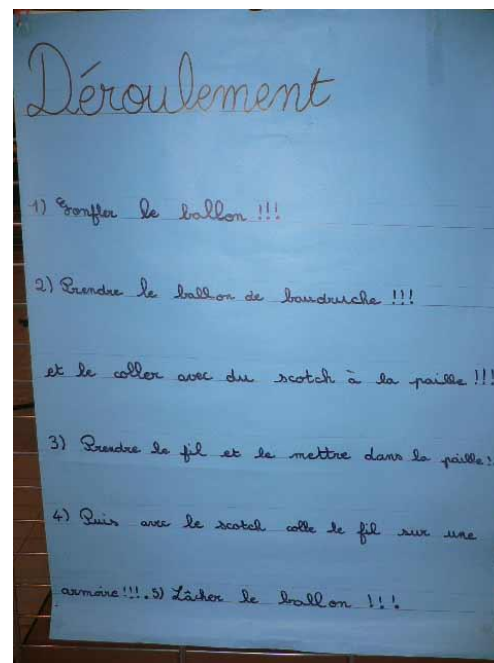 Déroulement
1) Gonfler le ballon !!!
2) Prendre le ballon de baudruche !!!
et le coller avec du scotch à la paille !!!
3) Prendre le fil et le mettre dans la paille !
4) Puis avec le scotch colle le fil sur une
armoire !!!. 5) Lâcher le ballon !!!